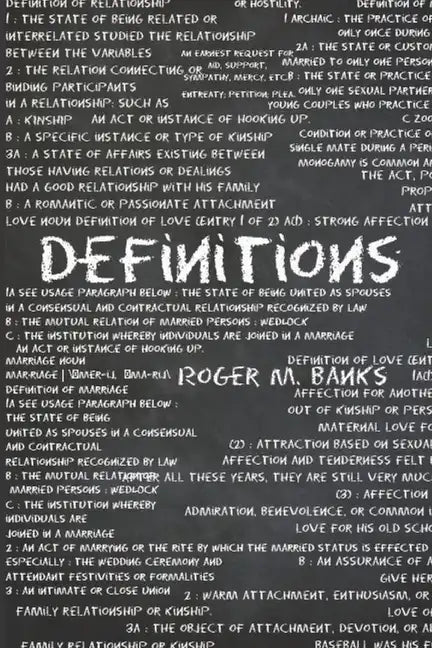 DEFINITION OF RELATIONSHIP
OR HOSTILITY.
DEFINITION OF M
1 : THE STATE OF BEING RELATED OR
1 ARCHAIC : THE PRACTICE OF
INTERRELATED STUDIED THE RELATIONSHIP
ONLY ONCE DURING
BETWEEN THE VARIABLES
AN EARNEST REQUEST FOR
2A : THE STATE OR CUSTOM
2 : THE RELATION CONNECTING OR
AID, SUPPORT,
MARRIED TO ONLY ONE PERSON
BINDING PARTICIPANTS
SYMPATHY, MERCY, ETC.
B : THE STATE OR PRACTICE
IN A RELATIONSHIP: SUCH AS
ENTREATY; PETITION; PLEA.
ONLY ONE SEXUAL PARTNER
YOUNG COUPLES WHO PRACTICE
A : KINSHIP
AN ACT OR INSTANCE OF HOOKING UP.
C ZOO
B : A SPECIFIC INSTANCE OR TYPE OF KINSHIP
CONDITION OR PRACTICE O
3A : A STATE OF AFFAIRS EXISTING BETWEEN
SINGLE MATE DURING A PERI
THOSE HAVING RELATIONS OR DEALINGS
MONOGAMY IS COMMON A
HAD A GOOD RELATIONSHIP WITH HIS FAMILY
THE ACT, PO
PROP
B : A ROMANTIC OR PASSIONATE ATTACHMENT
ATT
LOVE NOUN DEFINITION OF LOVE (ENTRY 1 OF 2) A(1) : STRONG AFFECTION
DEFINITIONS
(A SEE USAGE PARAGRAPH BELOW : THE STATE OF BEING UNITED AS SPOUSES
IN A CONSENSUAL AND CONTRACTUAL RELATIONSHIP RECOGNIZED BY LAW
B : THE MUTUAL RELATION OF MARRIED PERSONS : WEDLOCK
C : THE INSTITUTION WHEREBY INDIVIDUALS ARE JOINED IN A MARRIAGE
AN ACT OR INSTANCE OF HOOKING UP.
L
MARRIAGE NOUN
DEFINITION OF LOVE (ENT
MAR·RIAGE
ROGER M. BANKS
DEFINITION OF MARRIAGE
AFFECTION FOR ANOTHE
(A SEE USAGE PARAGRAPH BELOW :
OUT OF KINSHIP OR PERS
THE STATE OF BEING
MATERNAL LOVE FO
UNITED AS SPOUSES IN A CONSENSUAL
(2) : ATTRACTION BASED ON SEXUA
AND CONTRACTUAL
AFFECTION AND TENDERNESS FELT B
RELATIONSHIP RECOGNIZED BY LAW
B : THE MUTUAL RELATION OF
AFTER ALL THESE YEARS, THEY ARE STILL VERY MUC
MARRIED PERSONS : WEDLOCK
(3) : AFFECTION
C : THE INSTITUTION WHEREBY
ADMIRATION, BENEVOLENCE, OR COMMON I
INDIVIDUALS ARE
LOVE FOR HIS OLD SCHO
JOINED IN A MARRIAGE
2 : AN ACT OF MARRYING OR THE RITE BY WHICH THE MARRIED STATUS IS EFFECTED
ESPECIALLY : THE WEDDING CEREMONY AND
B : AN ASSURANCE OF A
ATTENDANT FESTIVITIES OR FORMALITIES
GIVE HER
3 : AN INTIMATE OR CLOSE UNION
2 : WARM ATTACHMENT, ENTHUSIASM, OR
FAMILY RELATIONSHIP OR KINSHIP.
LOVE O
3A : THE OBJECT OF ATTACHMENT, DEVOTION, OR A
FAMILY RELATIONSHIP OR KINSHIP.
BASEBALL WAS HIS F